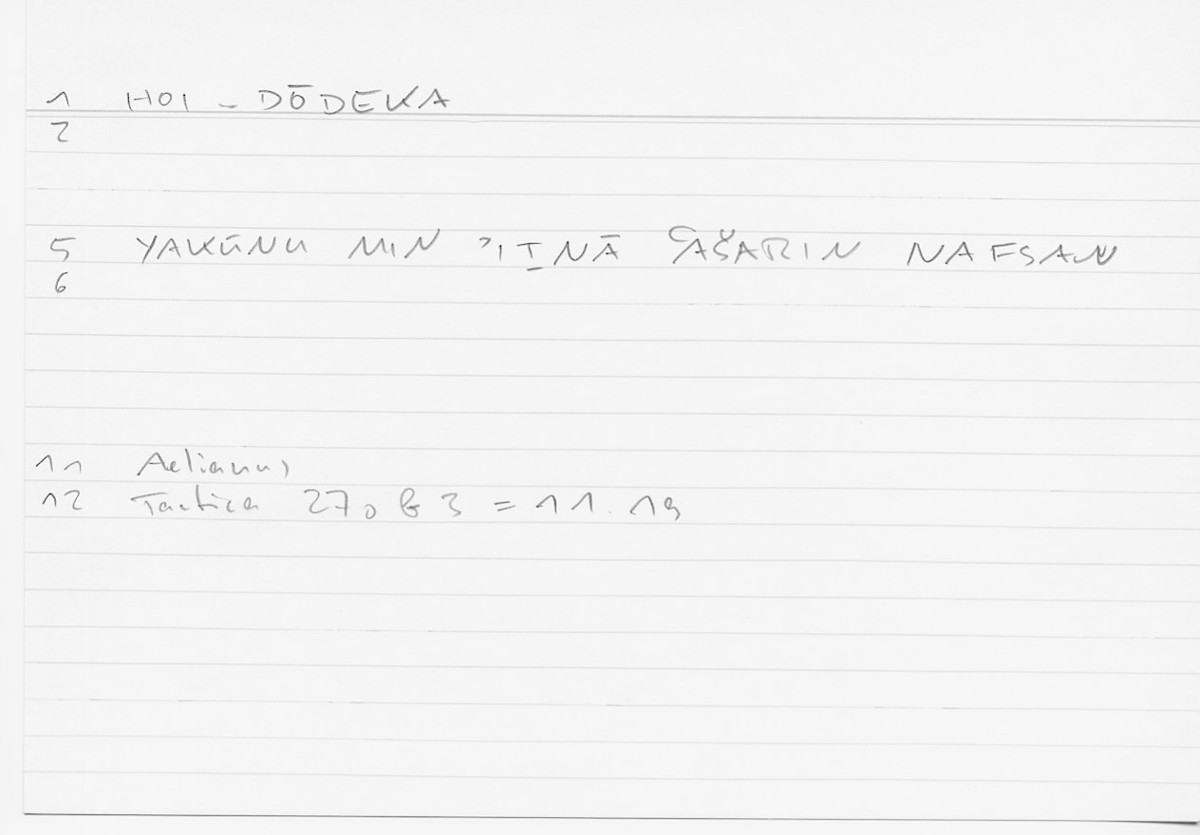 1 HOI - DŌDEKA
2
5 YAKŪNU MIN ʾIṮNĀ ʿAŠARIN NAFSAN
6
11 Aelianus,
12 Tactica 270 b 3 = 11.19